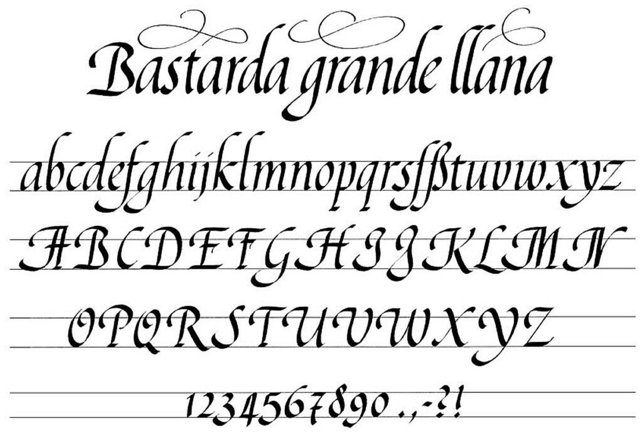 Bastarda grande llana
abcdefghijklmnopqrsſßtuvwxyz
ABCDEFGHIJKLMN
OPQRSTUVWXYZ
1234567890.,-?!